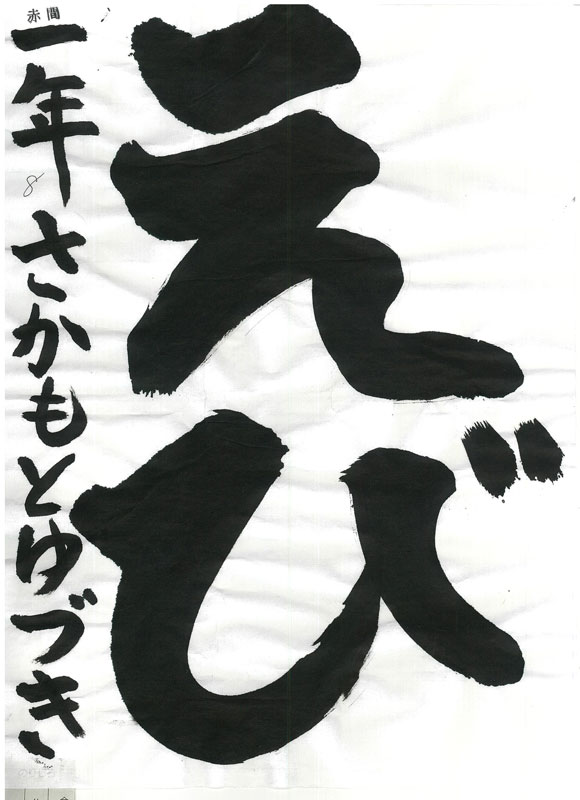 えび
赤間
一年 さかもとゆづき